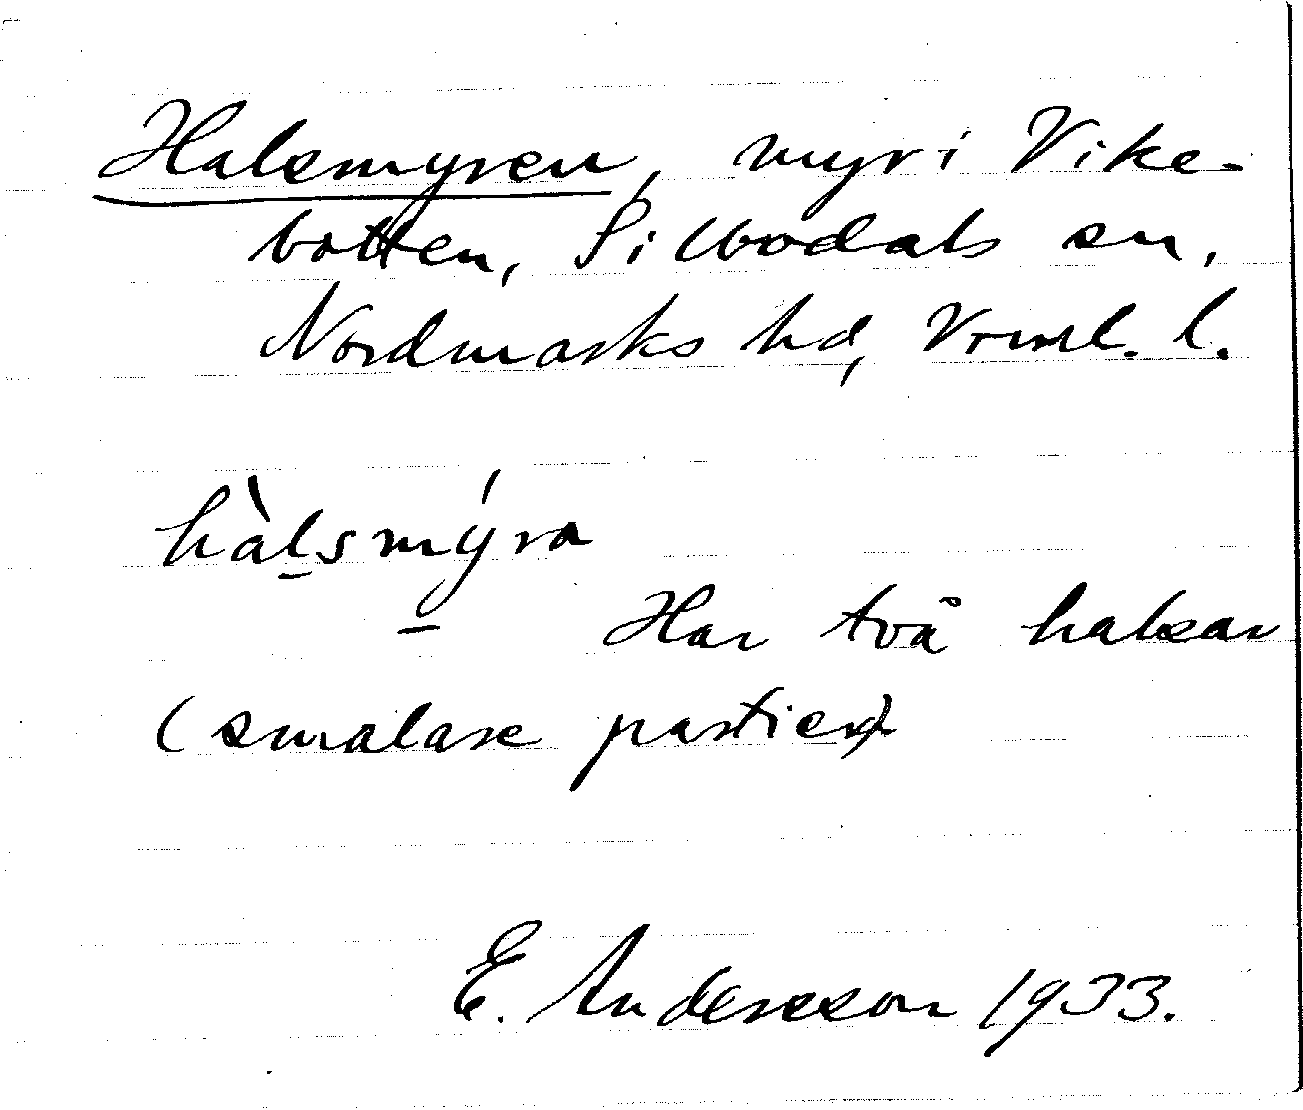 Halsmyren, myr i Vike-
botten, Silbodals sn,
Nordmarks hd, Vrml. l.
hàl̠smý̠ra
Har två halsar
(smalare partier)
E. Andersson 1933.